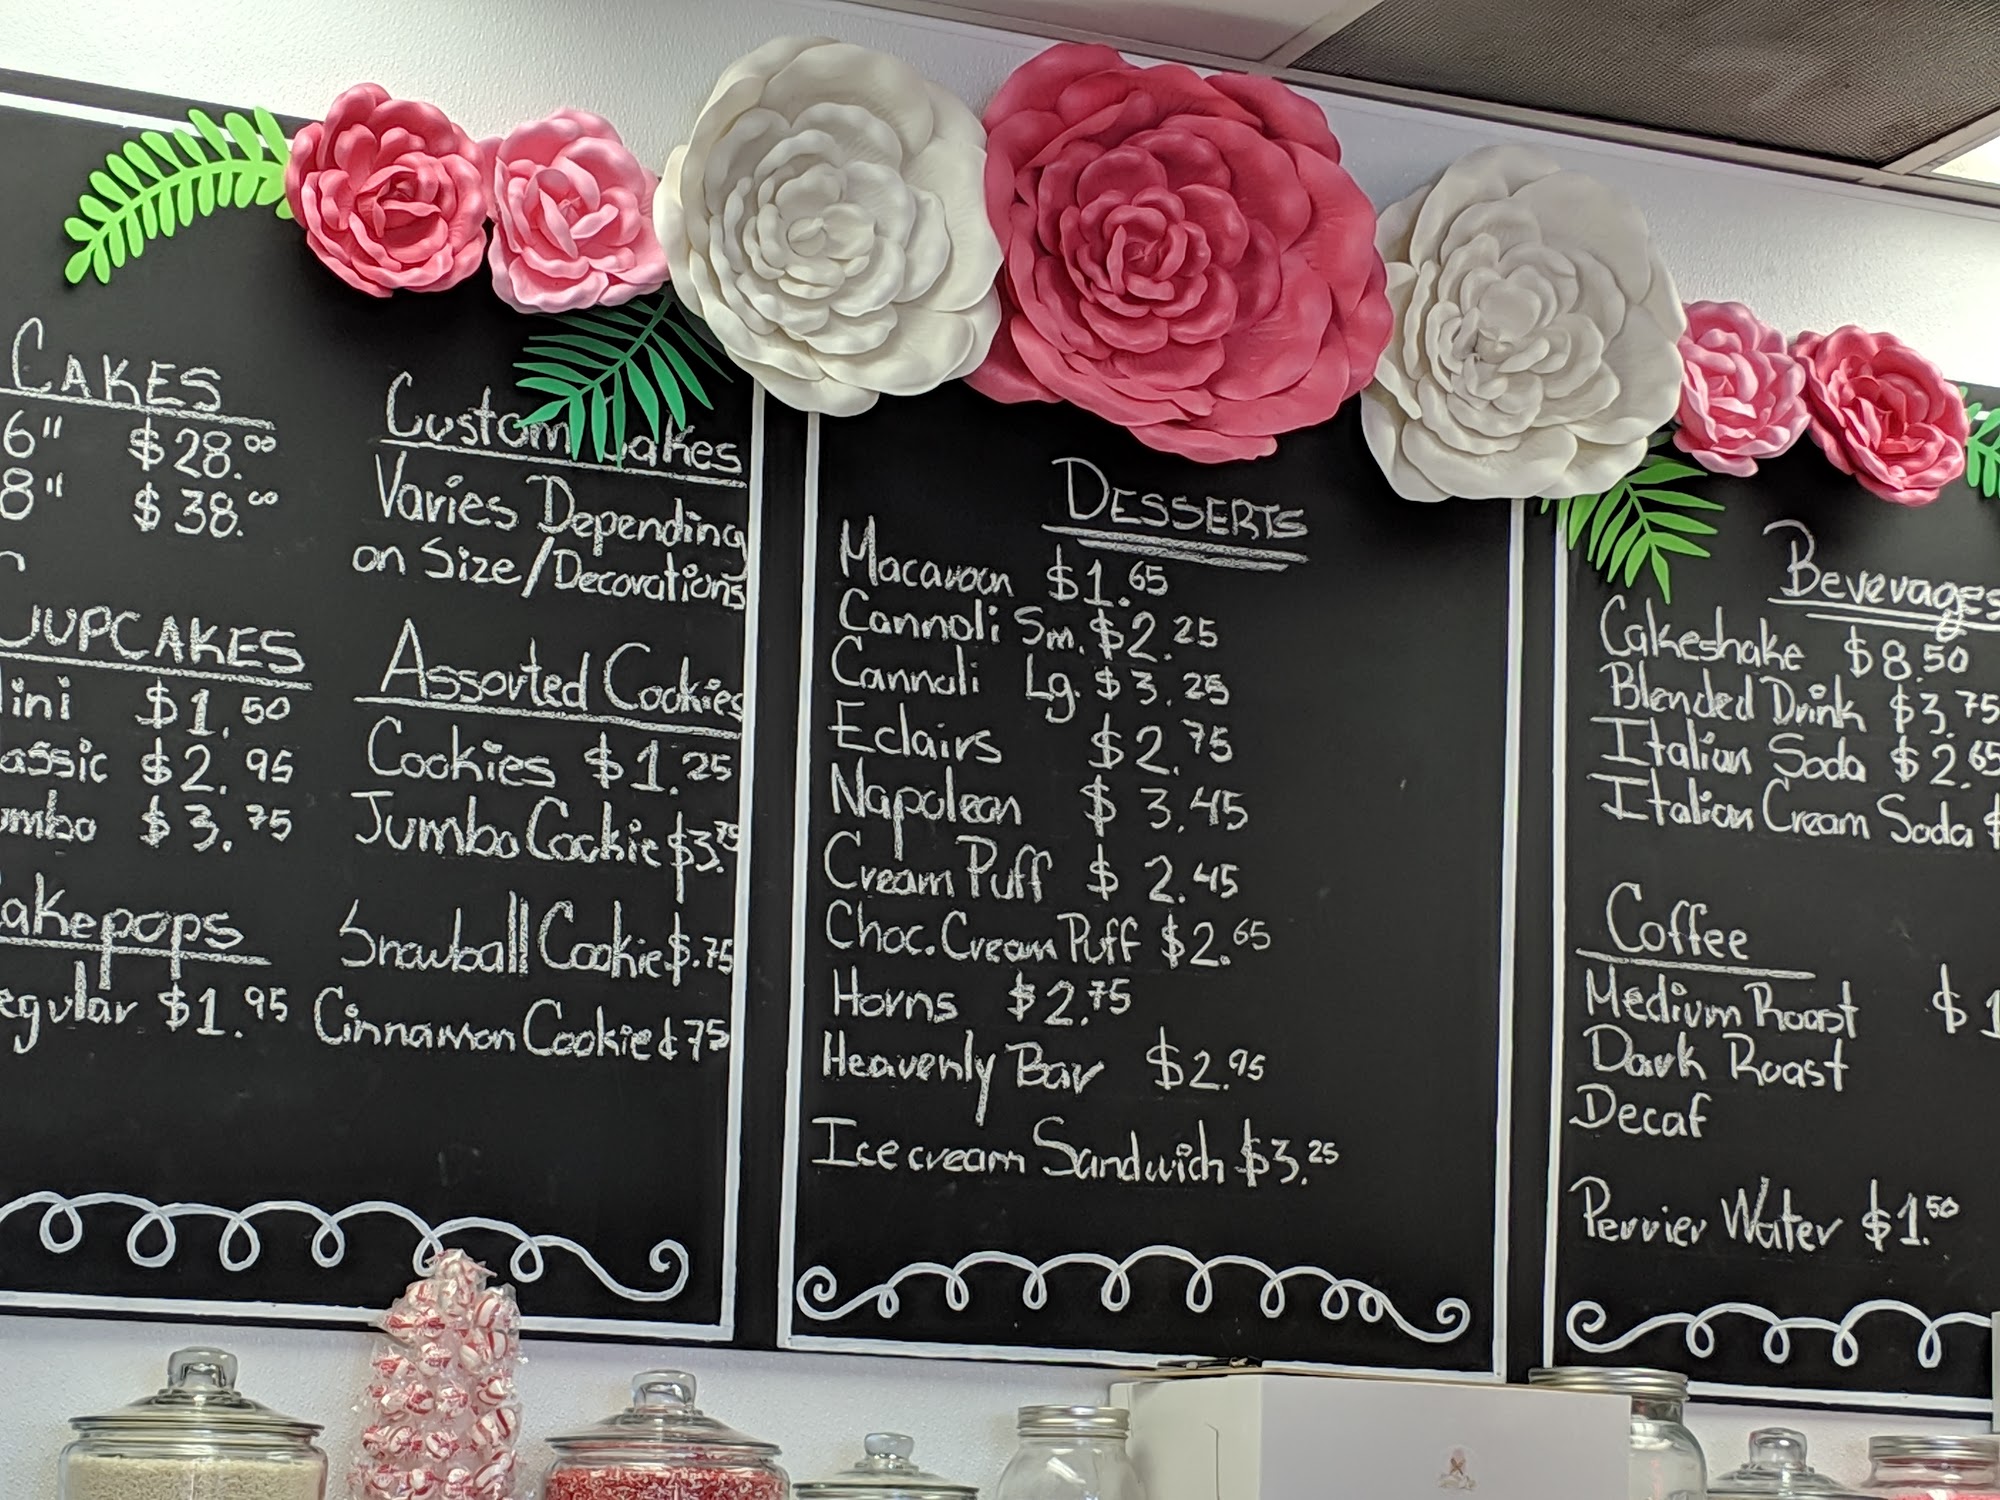 CAKES
6" $28.00
8" $38.00
CUPCAKES
$1.50
$2.95
$3.75
$1.95
Custom Cakes
Varies Depending
on Size/Decorations
Assorted Cookies
Cookies $1.25
Jumbo Cookie $3.75
Snowball Cookie $.75
Cinnamon Cookie 75
DESSERTS
Macaroon $1.65
Cannoli Sm. $2.25
Cannoli Lg. $3.25
Eclairs $2.75
Napoleon $3.45
Cream Puff $2.45
Choc. Cream Puff $2.65
Horns $2.75
Heavenly Bar $2.95
Ice cream Sandwich $3.25
Beverages
Cakeshake $8.50
Blended Drink $3.75
Italian Soda $2.65
Italian Cream Soda $
Coffee
Medium Roast $1
Dark Roast
Decaf
Perrier Water $1.50